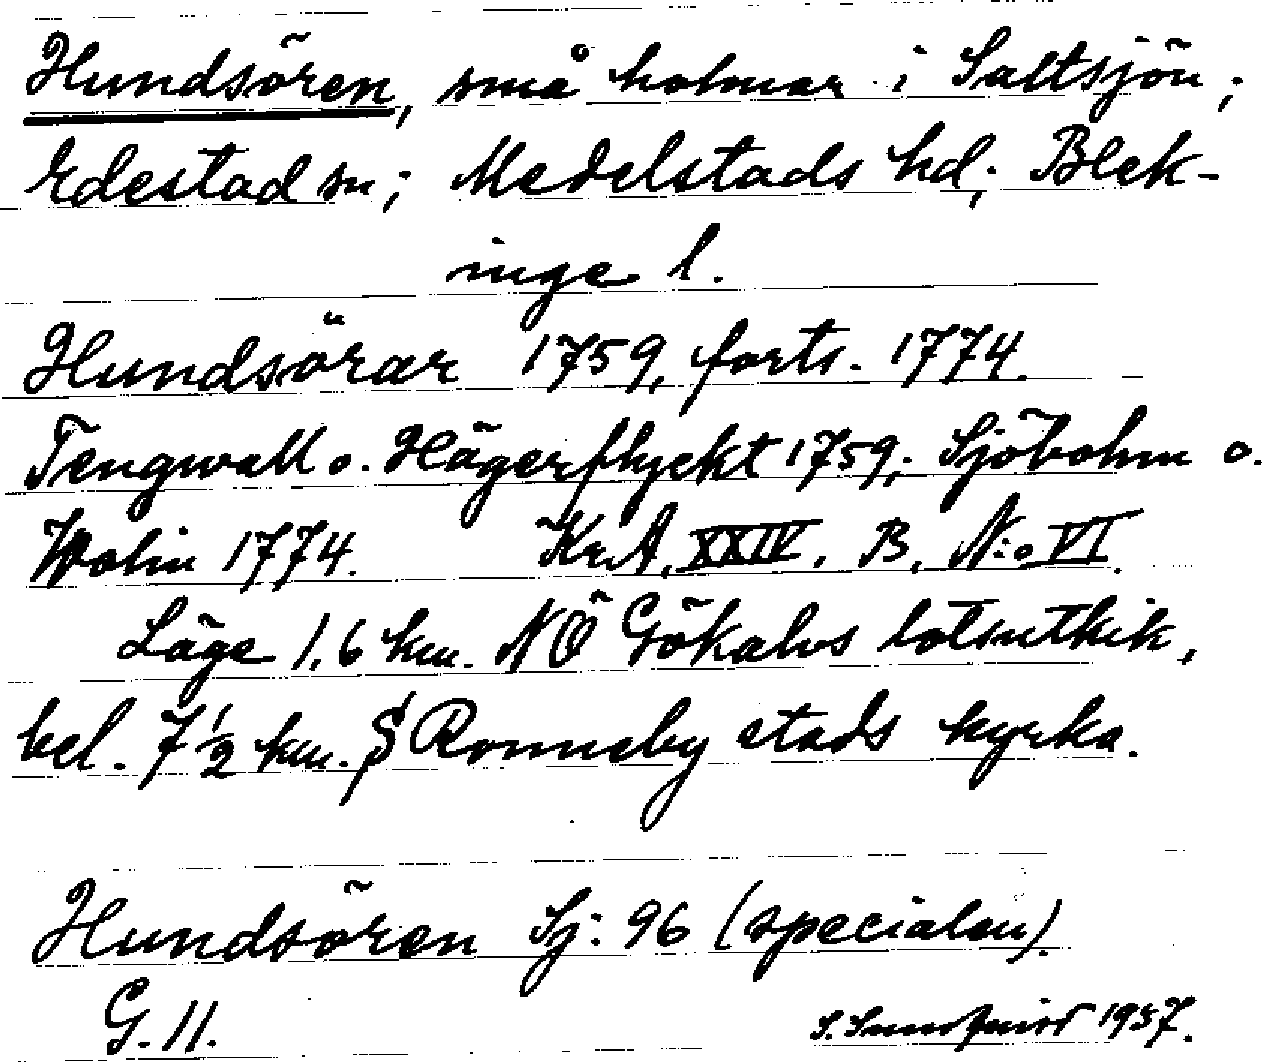 Hundsören, små holmar i Saltsjön;
Edestad sn; Medelstads hd; Blek-
inge l.
Hundsörar 1759, forts. 1774.
Tengwall o. Hägerflyckt 1759; Sjöbohm o.
Wolin 1774. KrA, XXIV, B, N:o VI.
Läge 1,6 km. NÖ Gökalvs lotsutkik,
bel. 7½ km. S Ronneby stads kyrka.
Hundsören Sj: 96 (specialen).
G. 11. S. 1937.